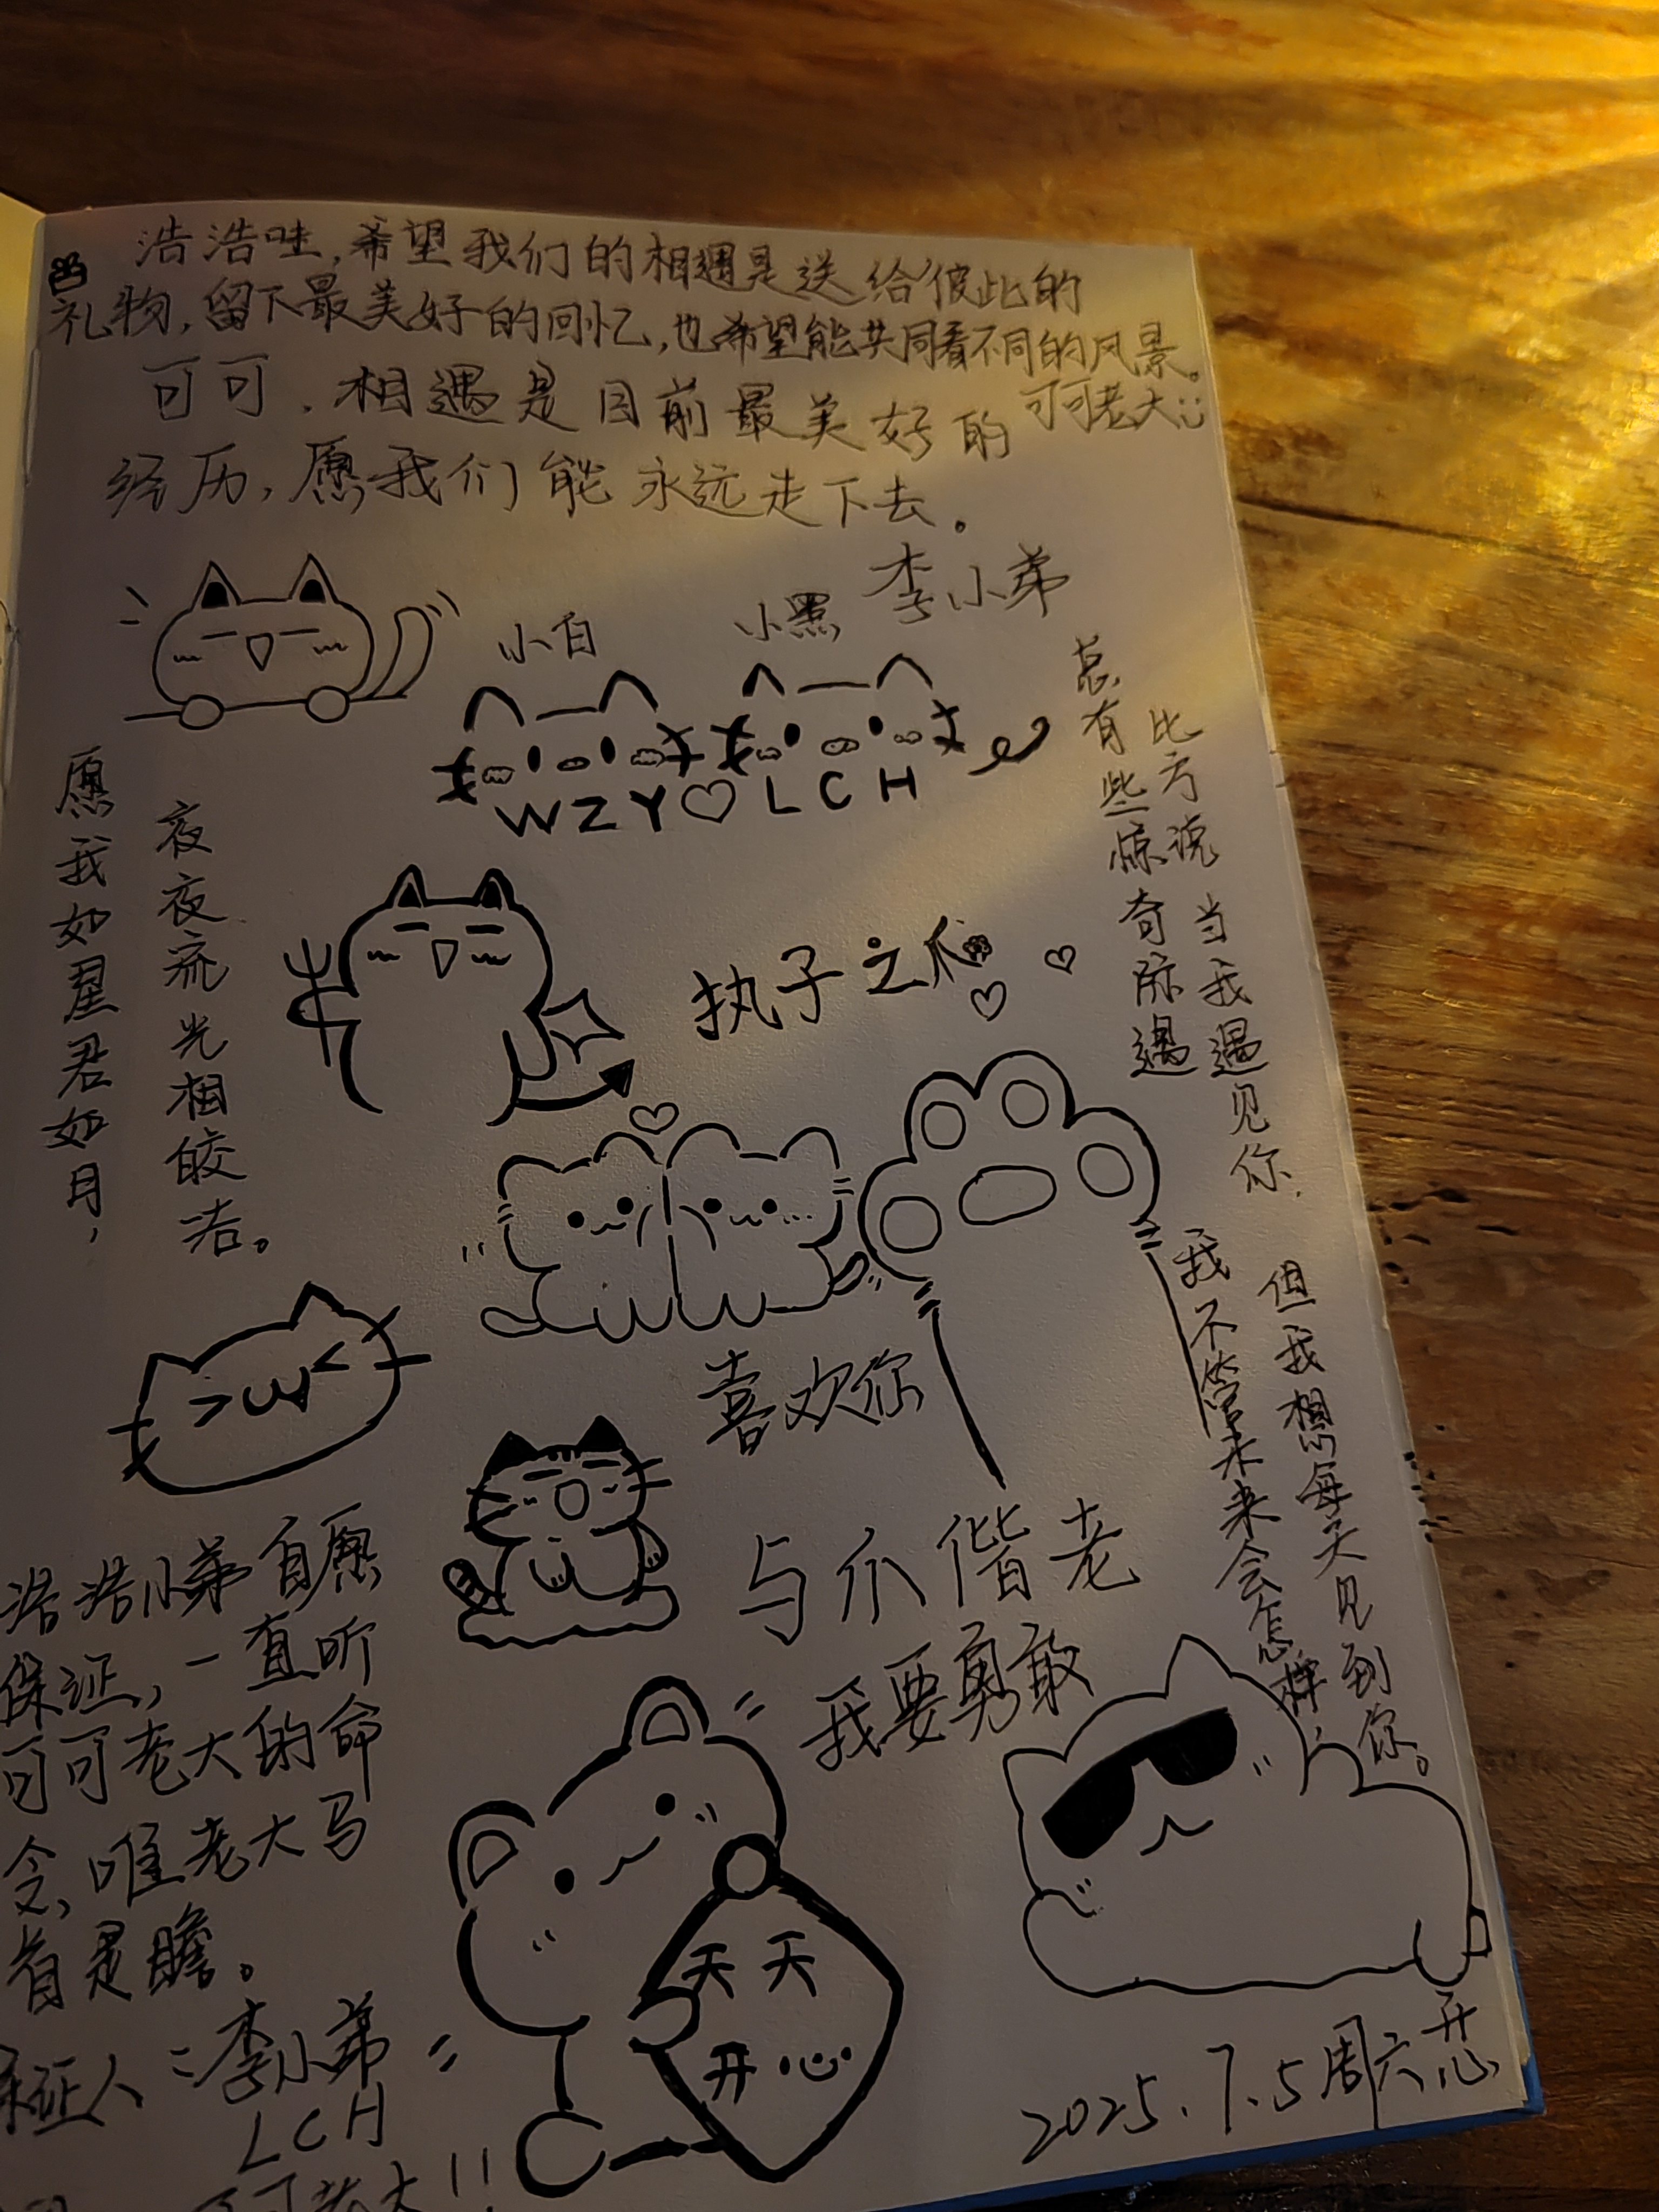 浩浩哇,希望我们的相遇是送给彼此的
礼物,留下最美好的回忆,也希望能共同看不同的风景。
可可老大
可可,相遇是目前最美好的
经历,愿我们能永远走下去。
李小弟
小白
小黑
WZY♡LCH
总有些惊奇际遇
比方说当我遇见你
愿我如星君如月,
夜夜流光相皎洁。
执子之爪
喜欢你
我不管未来会怎样,
但我想每天见到你。
与爪偕老
我要勇敢
浩浩小弟自愿
保证,一直听
可可老大的命
令,唯老大马
首是瞻。
证人:李小弟
LCH
可可老大!!
天天
开心
2025.7.5周六
开心